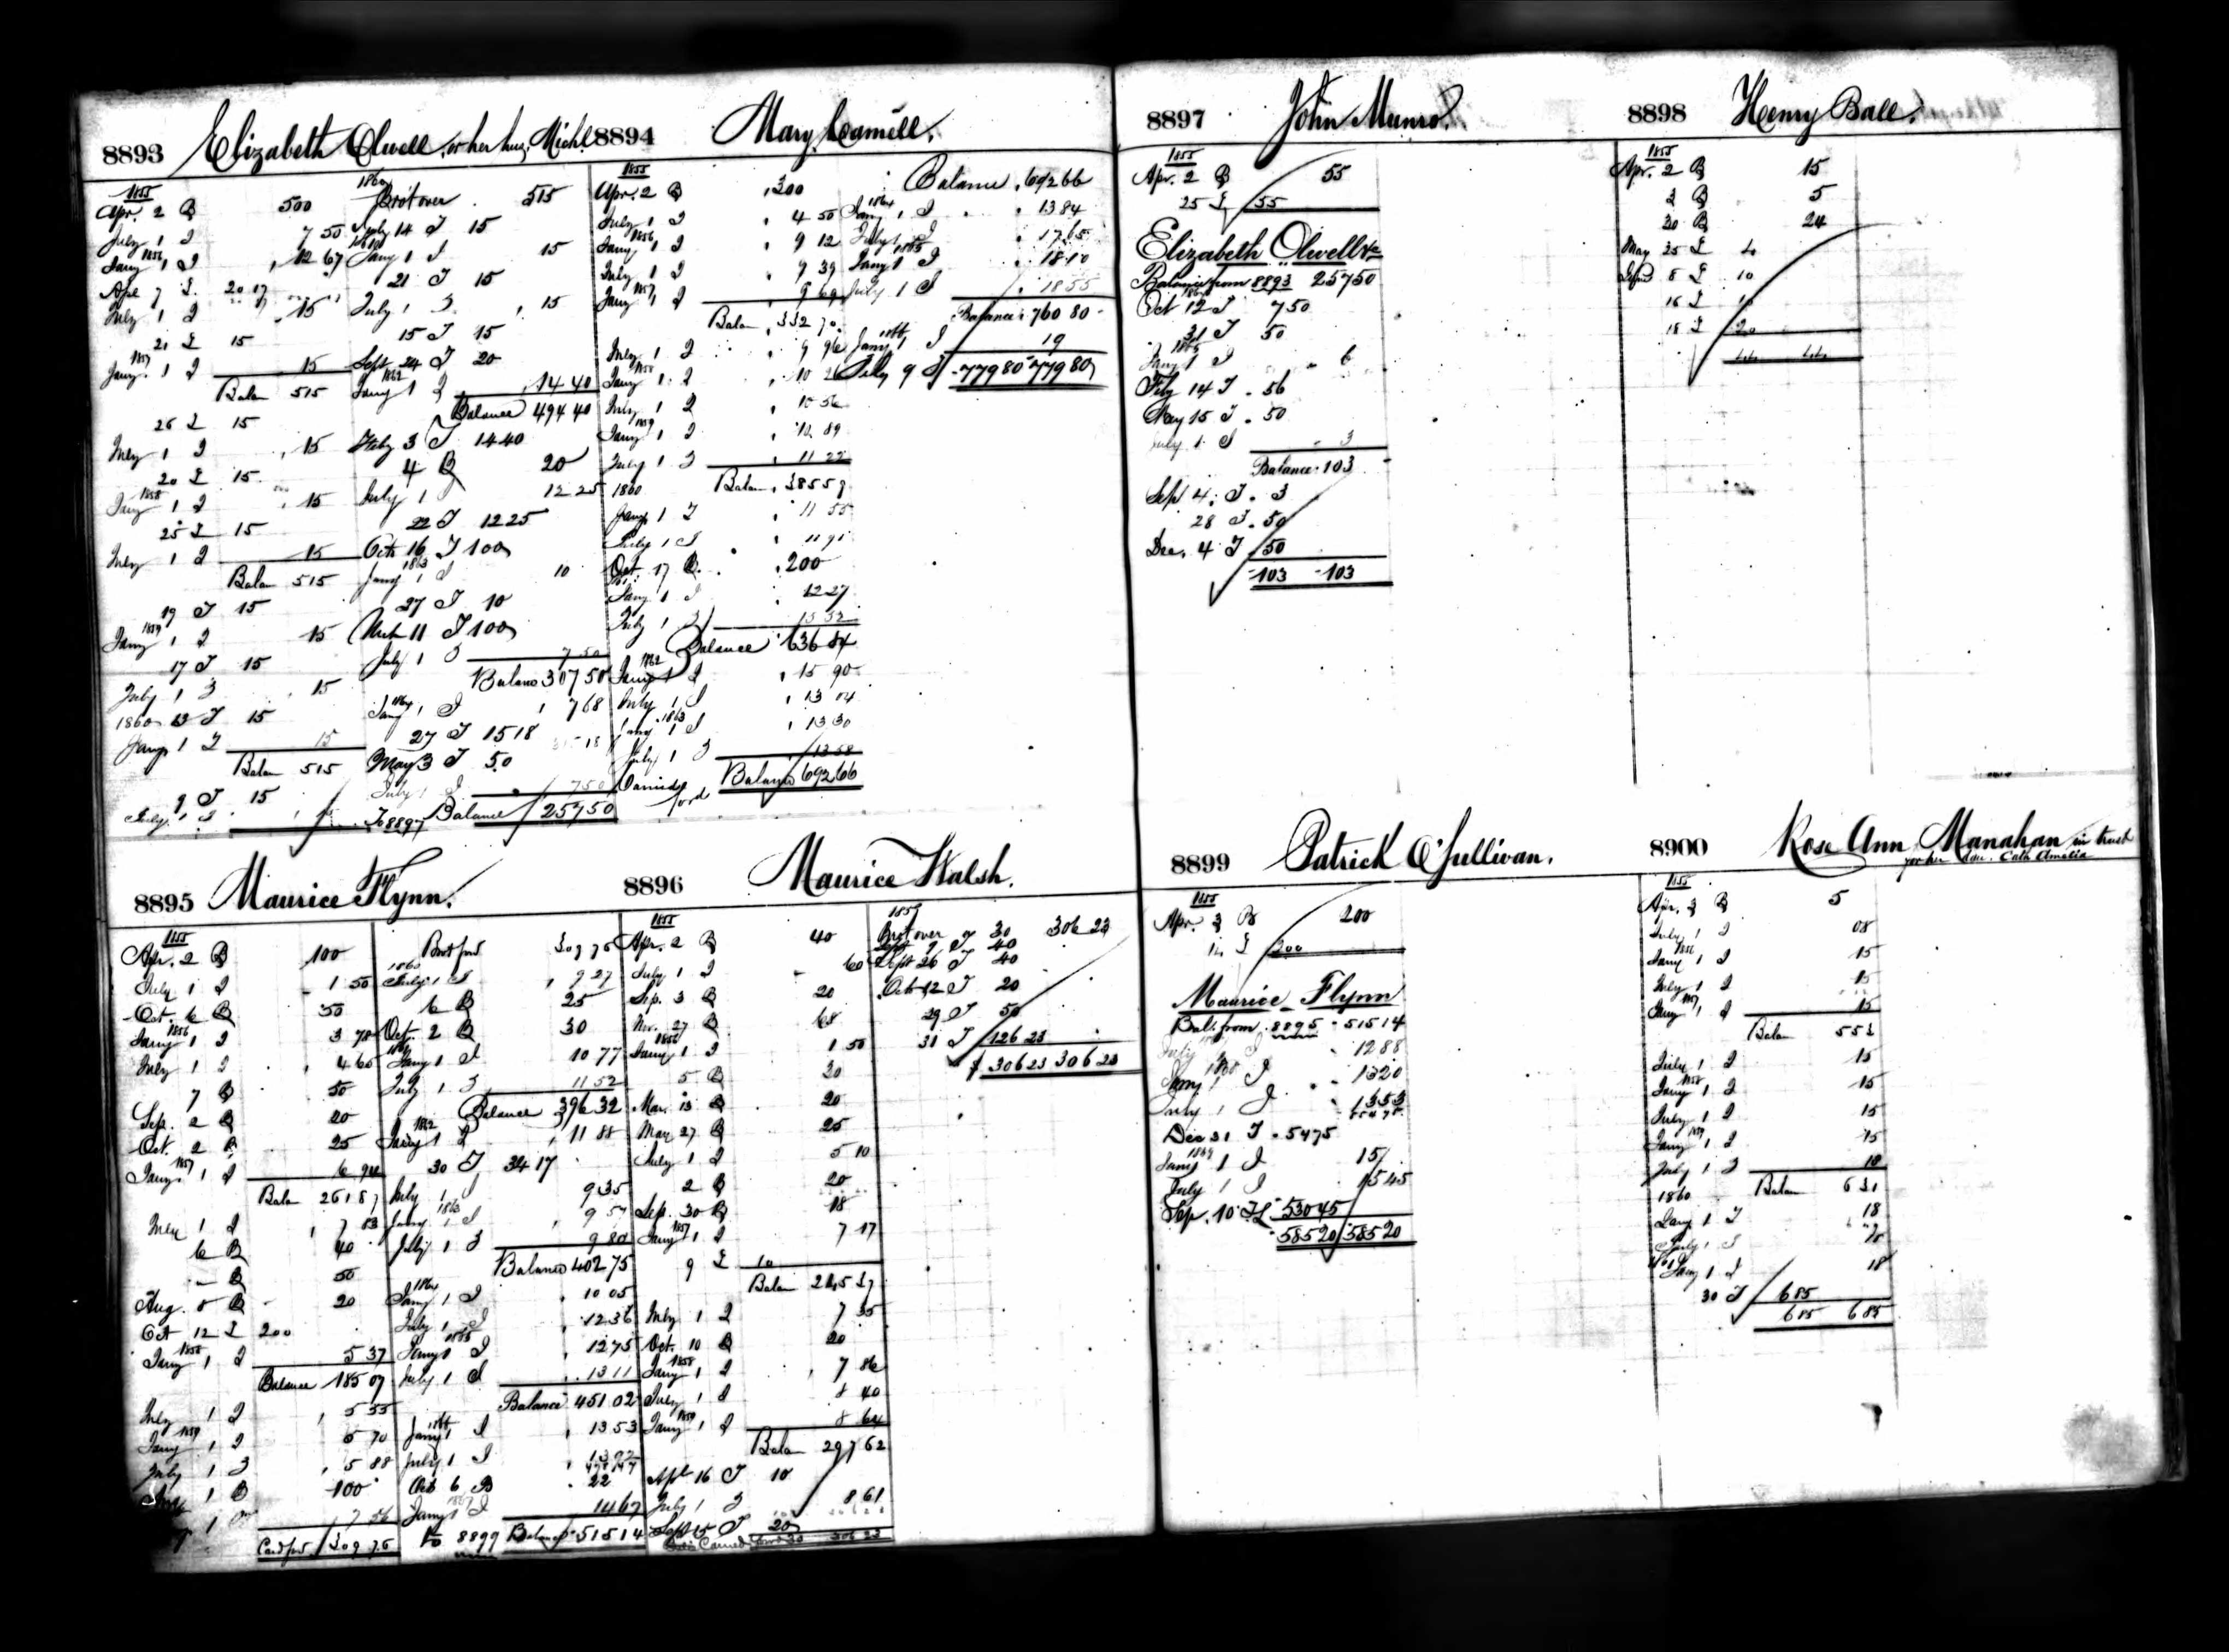 8893 Elizabeth Olwell or her hus. Michl
1855
Apr. 2 B 500
July 1 I 7 50
1856
Jany 1 I 12 67
Apl 7 I 20 17
July 1 I 15
21 I 15
1857
Jany 1 I 15
Balan 515
26 I 15
July 1 I 15
20 I 15
1858
Jany 1 I 15
25 I 15
July 1 I 15
Balan 515
19 I 15
1859
Jany 1 I 15
17 I 15
July 1 I 15
1860 13 I 15
Jany 1 I 15
Balan 515
9 I 15
July 1 I
1860
Brot over 515
July 14 I 15
Jany 1 I 15
21 I 15
July 1 I 15
15 I 15
Sept 24 I 20
1862
Jany 1 I 14 40
Balance 494 40
Feby 3 I 14 40
4 B 20
July 1 12 25
22 I 12 25
Octr 16 I 100
1863
Jany 1 I 10
27 I 10
Mch 11 I 100
July 1 I 7 50
Balance 307 50
1864
Jany 1 I 7 68
27 I 15 18
May 3 I 50
July 1 I 7 50
To 8897 Balance 257 50
8894 Mary Camell.
1855
Apr. 2 B 200
July 1 I 4 50
1856
Jany 1 I 9 12
July 1 I 9 39
1857
Jany 1 I 9 69
Balan 332 70
July 1 I 9 96
1858
Jany 1 I 10 26
July 1 I 10 56
1859
Jany 1 I 10 89
July 1 I 11 22
1860 Balan 385 59
Jany 1 I 11 55
July 1 I 11 91
Oct 17 B 200
Jany 1 I 12 27
July 1 I 15 52
Balance 636 84
1862
Jany 1 I 15 90
July 1 I 13 04
1863
Jany 1 I 13 30
July 1 I 13 58
Carried ford Balance 692 66
Balance 692 66
1864
Jany 1 I 13 84
July 1 I 17 65
1865
Jany 1 I 18 10
July 1 I 18 55
Balance 760 80
1866
Jany 1 I 19
July 9 I 779 80 779 80
8895 Maurice Flynn.
1855
Apr. 2 B 100
July 1 I 1 50
Oct. 6 B 50
1856
Jany 1 I 3 78
July 1 I 4 65
7 B 50
Sep. 2 B 20
Oct. 2 B 25
1857
Jany 1 I 6 94
Balan 261 87
July 1 I 7 83
6 B 40
— B 50
Aug. 8 B 20
Oct 12 I 200
1858
Jany 1 I 5 37
Balance 185 07
July 1 I 5 55
1859
Jany 1 I 5 70
July 1 I 5 88
B 100
7 56
Card ford 309 76
Brot ford 309 76
1860
July 1 I 9 27
6 B 25
Oct. 2 B 30
Jany 1 I 10 77
July 1 I 11 52
Balance 396 32
1862
Jany 1 I 11 88
30 I 34 17
July 1 I 9 35
1863
Jany 1 I 9 57
July 1 I 9 80
Balance 402 75
1864
Jany 1 I 10 05
July 1 I 12 36
1865
Jany 1 I 12 75
July 1 I 13 11
Balance 451 02
1866
Jany 1 I 13 53
July 1 I 13 92
Oct 6 B 22
1867
Jany 1 I 14 67
To 8899 Balance 515 14
8896 Maurice Walsh.
1855
Apr. 2 B 40
July 1 I 60
Sep. 3 B 20
Nov. 27 B 68
1856
Jany 1 I 1 50
5 B 30
Mar. 13 B 20
May 27 B 25
July 1 I 5 10
2 B 20
Sep. 30 B 18
1857
Jany 1 I 7 17
9 I 10
Balan 245 37
July 1 I 7 35
Oct. 10 B 20
1858
Jany 1 I 7 86
July 1 I 8 40
1859
Jany 1 I 8 64
Balan 297 62
Apl 16 I 10
July 1 I 8 61
Sept 15 I 20
Carried ford 30 306 23
1859
Brot over 30 306 23
Sept 9 I 40
Sept 26 I 40
Oct 12 I 20
29 I 50
31 I 126 23
$ 306 23 306 23
8897 John Munro.
1855
Apr. 2 B 55
25 I 55
Elizabeth Olwell &c
Balance from 8893 257 50
1864
Oct 12 I 7 50
31 I 50
1865
Jany 1 I 6
Feby 14 I 56
May 15 I 50
July 1 I 3
Balance 103
Sept 4 I 3
28 I 50
Dec. 4 I 50
103 103
8898 Henry Ball.
1855
Apr. 2 B 15
3 B 5
30 B 24
May 25 I 4
8 I 10
16 I 10
18 I 20
44 44
8899 Patrick O'Sullivan.
1855
Apr. 3 B 200
14 I 200
Maurice Flynn
Bal. from 8895 515 14
July 1 I 12 88
1868
Jany 1 I 13 20
July 1 I 13 53
Dec 31 I 54 75
1869
Jany 1 I 15
July 1 I 15 45
Sep. 10 I 530 45
585 20 585 20
8900 Rose Ann Manahan in trust
for her dau. Cath Amelia
1855
Apr. 3 B 5
July 1 I 08
1856
Jany 1 I 15
July 1 I 15
1857
Jany 1 I 15
Balan 5 53
July 1 I 15
1858
Jany 1 I 15
July 1 I 15
1859
Jany 1 I 15
July 1 I 18
1860 Balan 6 31
Jany 1 I 18
July 1 I 18
Jany 1 I 18
30 I 6 85
6 85 6 85